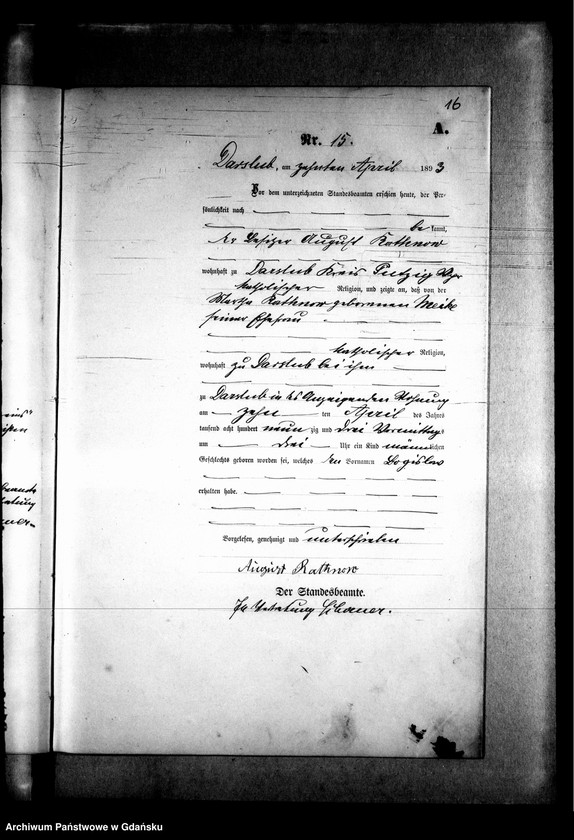 16
A.
Nr. 15.
Darslub, am zehnten April 1893
Vor dem unterzeichneten Standesbeamten erschien heute, der Per-
sönlichkeit nach
be kannt,
der Besitzer August Rathnow
wohnhaft zu Darslub Kreis Putzig
katholischer Religion, und zeigte an, daß von der
Martha Rathnow geborenen
seiner Ehefrau
katholischer Religion,
wohnhaft zu Darslub bei ihm
zu Darslub in des Anzeigenden Wohnung
am zehn ten April des Jahres
tausend acht hundert neun zig und drei Vormittags
um drei Uhr ein Kind männlichen
Geschlechts geboren worden sei, welches den Vornamen Bogislav
erhalten habe.
Vorgelesen, genehmigt und unterschrieben
August Rathnow
Der Standesbeamte.
In Vertretung
Archiwum Państwowe w Gdańsku